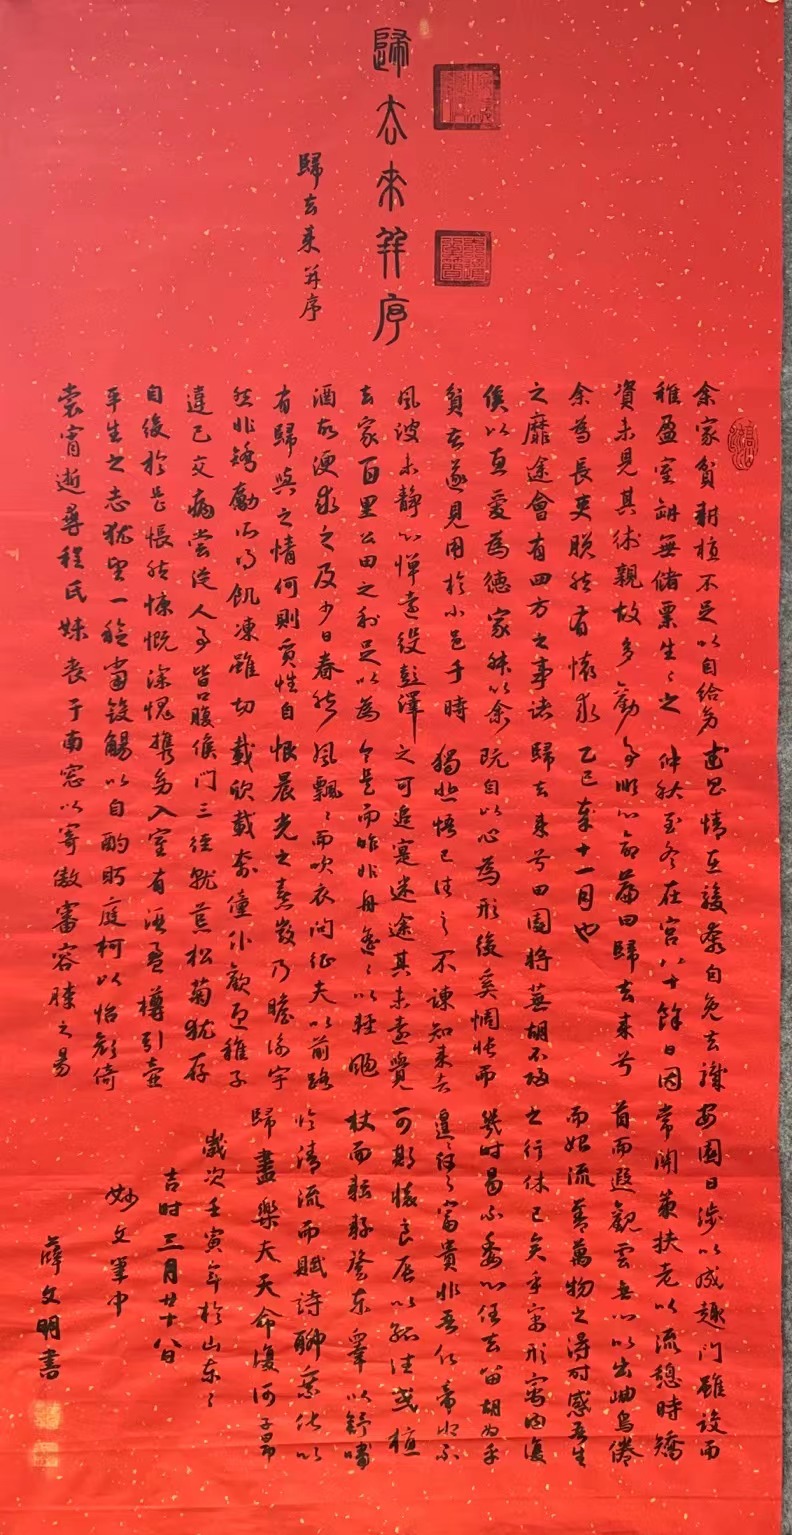 歸去來并序
歸去來并序
余家貧耕植不足以自給幼
稚盈室缾無儲粟生々之
資未見其術親故多勸
余為長吏脫然有懷求
之靡途會有四方之事諸
侯以惠愛為德家叔以余
貧苦遂見用於小邑于時
風波未靜心憚遠役彭澤
去家百里公田之利足以為
酒故便求之及少日眷然
有歸與之情何則質性自
然非矯勵所得飢凍雖切
違己交病嘗從人事皆口腹
自役於是悵然慷慨深愧
平生之志猶望一稔當斂
裳宵逝尋程氏妹喪于
情在駿奔自免去職
仲秋至冬在官八十餘日因
事順心命篇曰歸去來兮
乙巳年十一月也
歸去來兮田園將蕪胡不歸
既自以心為形役奚惆悵而
獨悲悟已往之不諫知來者
之可追寔迷途其未遠覺
今是而昨非舟遙々以輕颺
風飄々而吹衣問征夫以前路
恨晨光之熹微乃瞻衡宇
載欣載奔僮僕歡迎稚子
候門三徑就荒松菊猶存
攜幼入室有酒盈樽引壺
觴以自酌眄庭柯以怡顏倚
南窓以寄傲審容膝之易
安園日涉以成趣門雖設而
常關策扶老以流憩時矯
首而遐觀雲無心以出岫鳥倦
而如流善萬物之得時感吾生
之行休已矣乎寓形寓內復
幾時曷不委心任去留胡為乎
遑々何之富貴非吾願帝鄉不
可期懷良辰以孤往或植
杖而耘耔登東皋以舒嘯
臨清流而賦詩聊乘化以
歸盡樂夫天命復何
歲次壬寅年於山東々
吉时三月廿十八日
妙文筆中
薛文明書